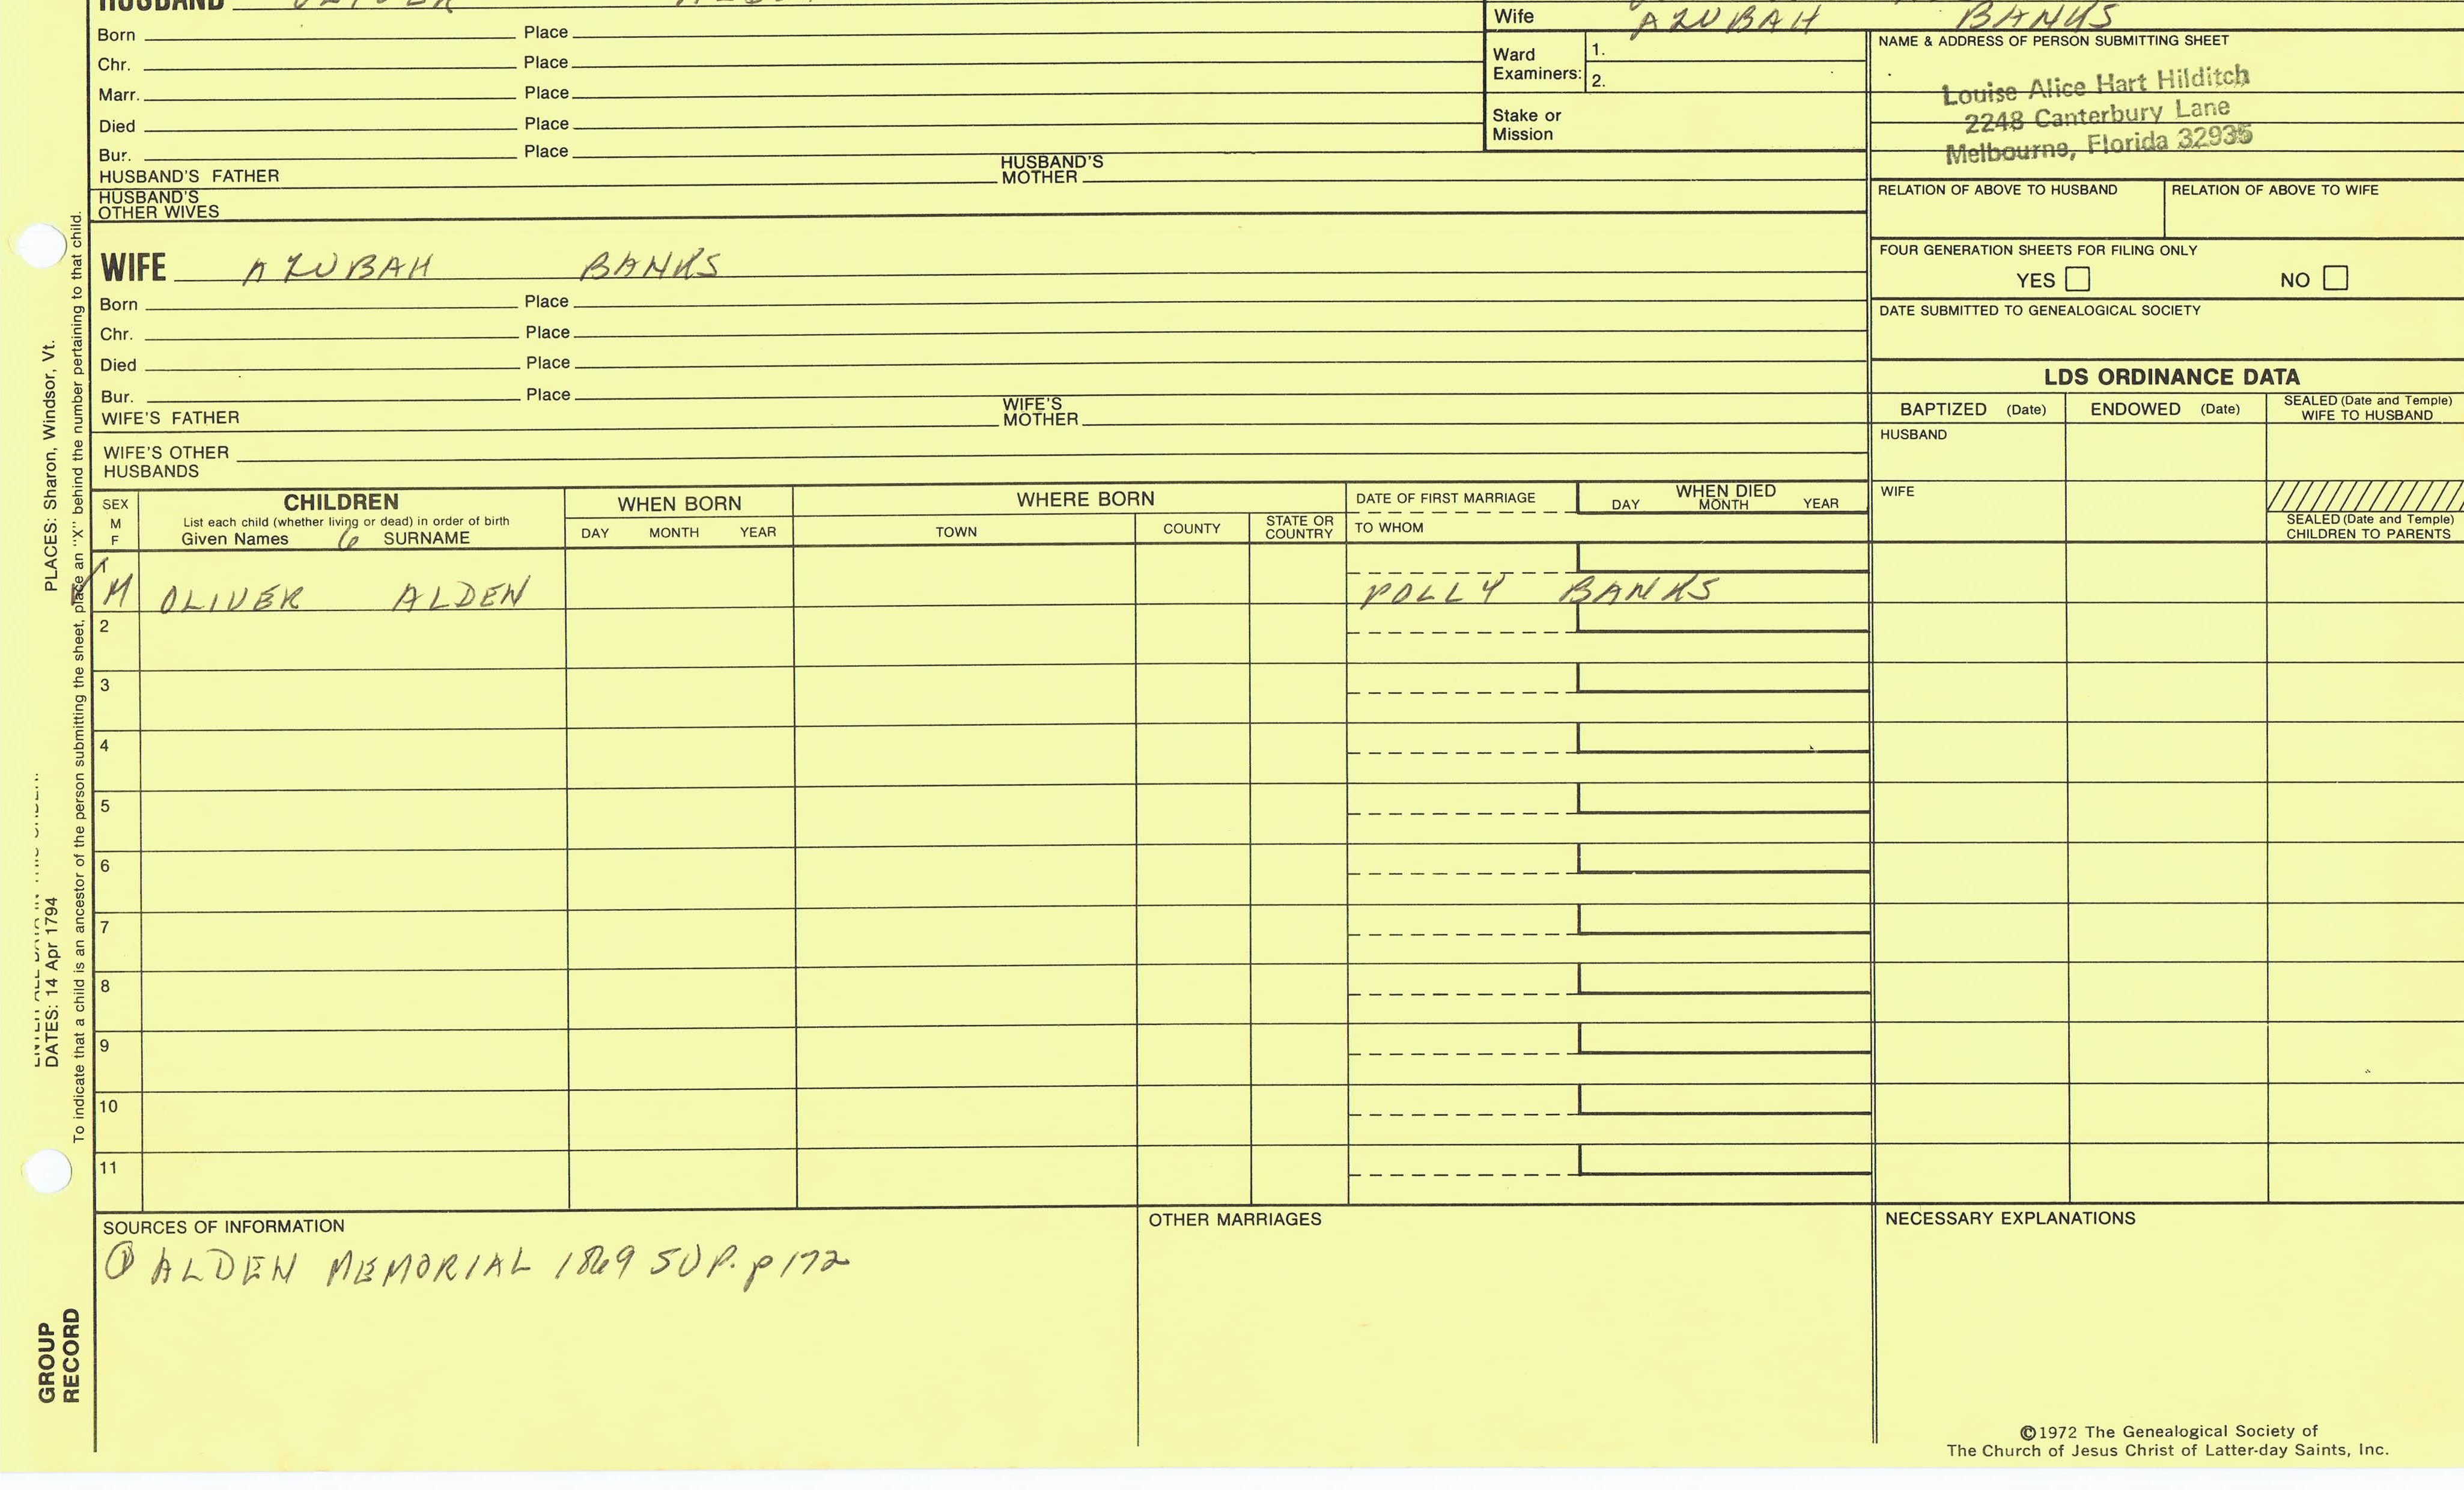 HUSBAND OLIVER
Born Place
Chr. Place
Marr. Place
Died Place
Bur. Place
HUSBAND'S FATHER HUSBAND'S MOTHER
HUSBAND'S OTHER WIVES
Wife AZUBAH BANKS
Ward Examiners: 1.
2.
Stake or Mission
NAME & ADDRESS OF PERSON SUBMITTING SHEET
Louise Alice Hart Hilditch
2248 Canterbury Lane
Melbourne, Florida 32935
RELATION OF ABOVE TO HUSBAND RELATION OF ABOVE TO WIFE
FOUR GENERATION SHEETS FOR FILING ONLY
YES NO
DATE SUBMITTED TO GENEALOGICAL SOCIETY
WIFE AZUBAH BANKS
Born Place
Chr. Place
Died Place
Bur. Place
WIFE'S FATHER WIFE'S MOTHER
WIFE'S OTHER HUSBANDS
LDS ORDINANCE DATA
BAPTIZED (Date) ENDOWED (Date) SEALED (Date and Temple) WIFE TO HUSBAND
HUSBAND
WIFE
SEALED (Date and Temple) CHILDREN TO PARENTS
SEX M F
CHILDREN
List each child (whether living or dead) in order of birth
Given Names 6 SURNAME
WHEN BORN
DAY MONTH YEAR
WHERE BORN
TOWN COUNTY STATE OR COUNTRY
DATE OF FIRST MARRIAGE
TO WHOM
WHEN DIED
DAY MONTH YEAR
1
M OLIVER ALDEN POLLY BANKS
2
3
4
5
6
7
8
9
10
11
SOURCES OF INFORMATION
① ALDEN MEMORIAL 1869 SUP. p172
OTHER MARRIAGES
NECESSARY EXPLANATIONS
©1972 The Genealogical Society of
The Church of Jesus Christ of Latter-day Saints, Inc.
PLACES: Sharon, Windsor, Vt.
DATES: 14 Apr 1794
To indicate that a child is an ancestor of the person submitting the sheet, place an "X" behind the number pertaining to that child.
GROUP RECORD